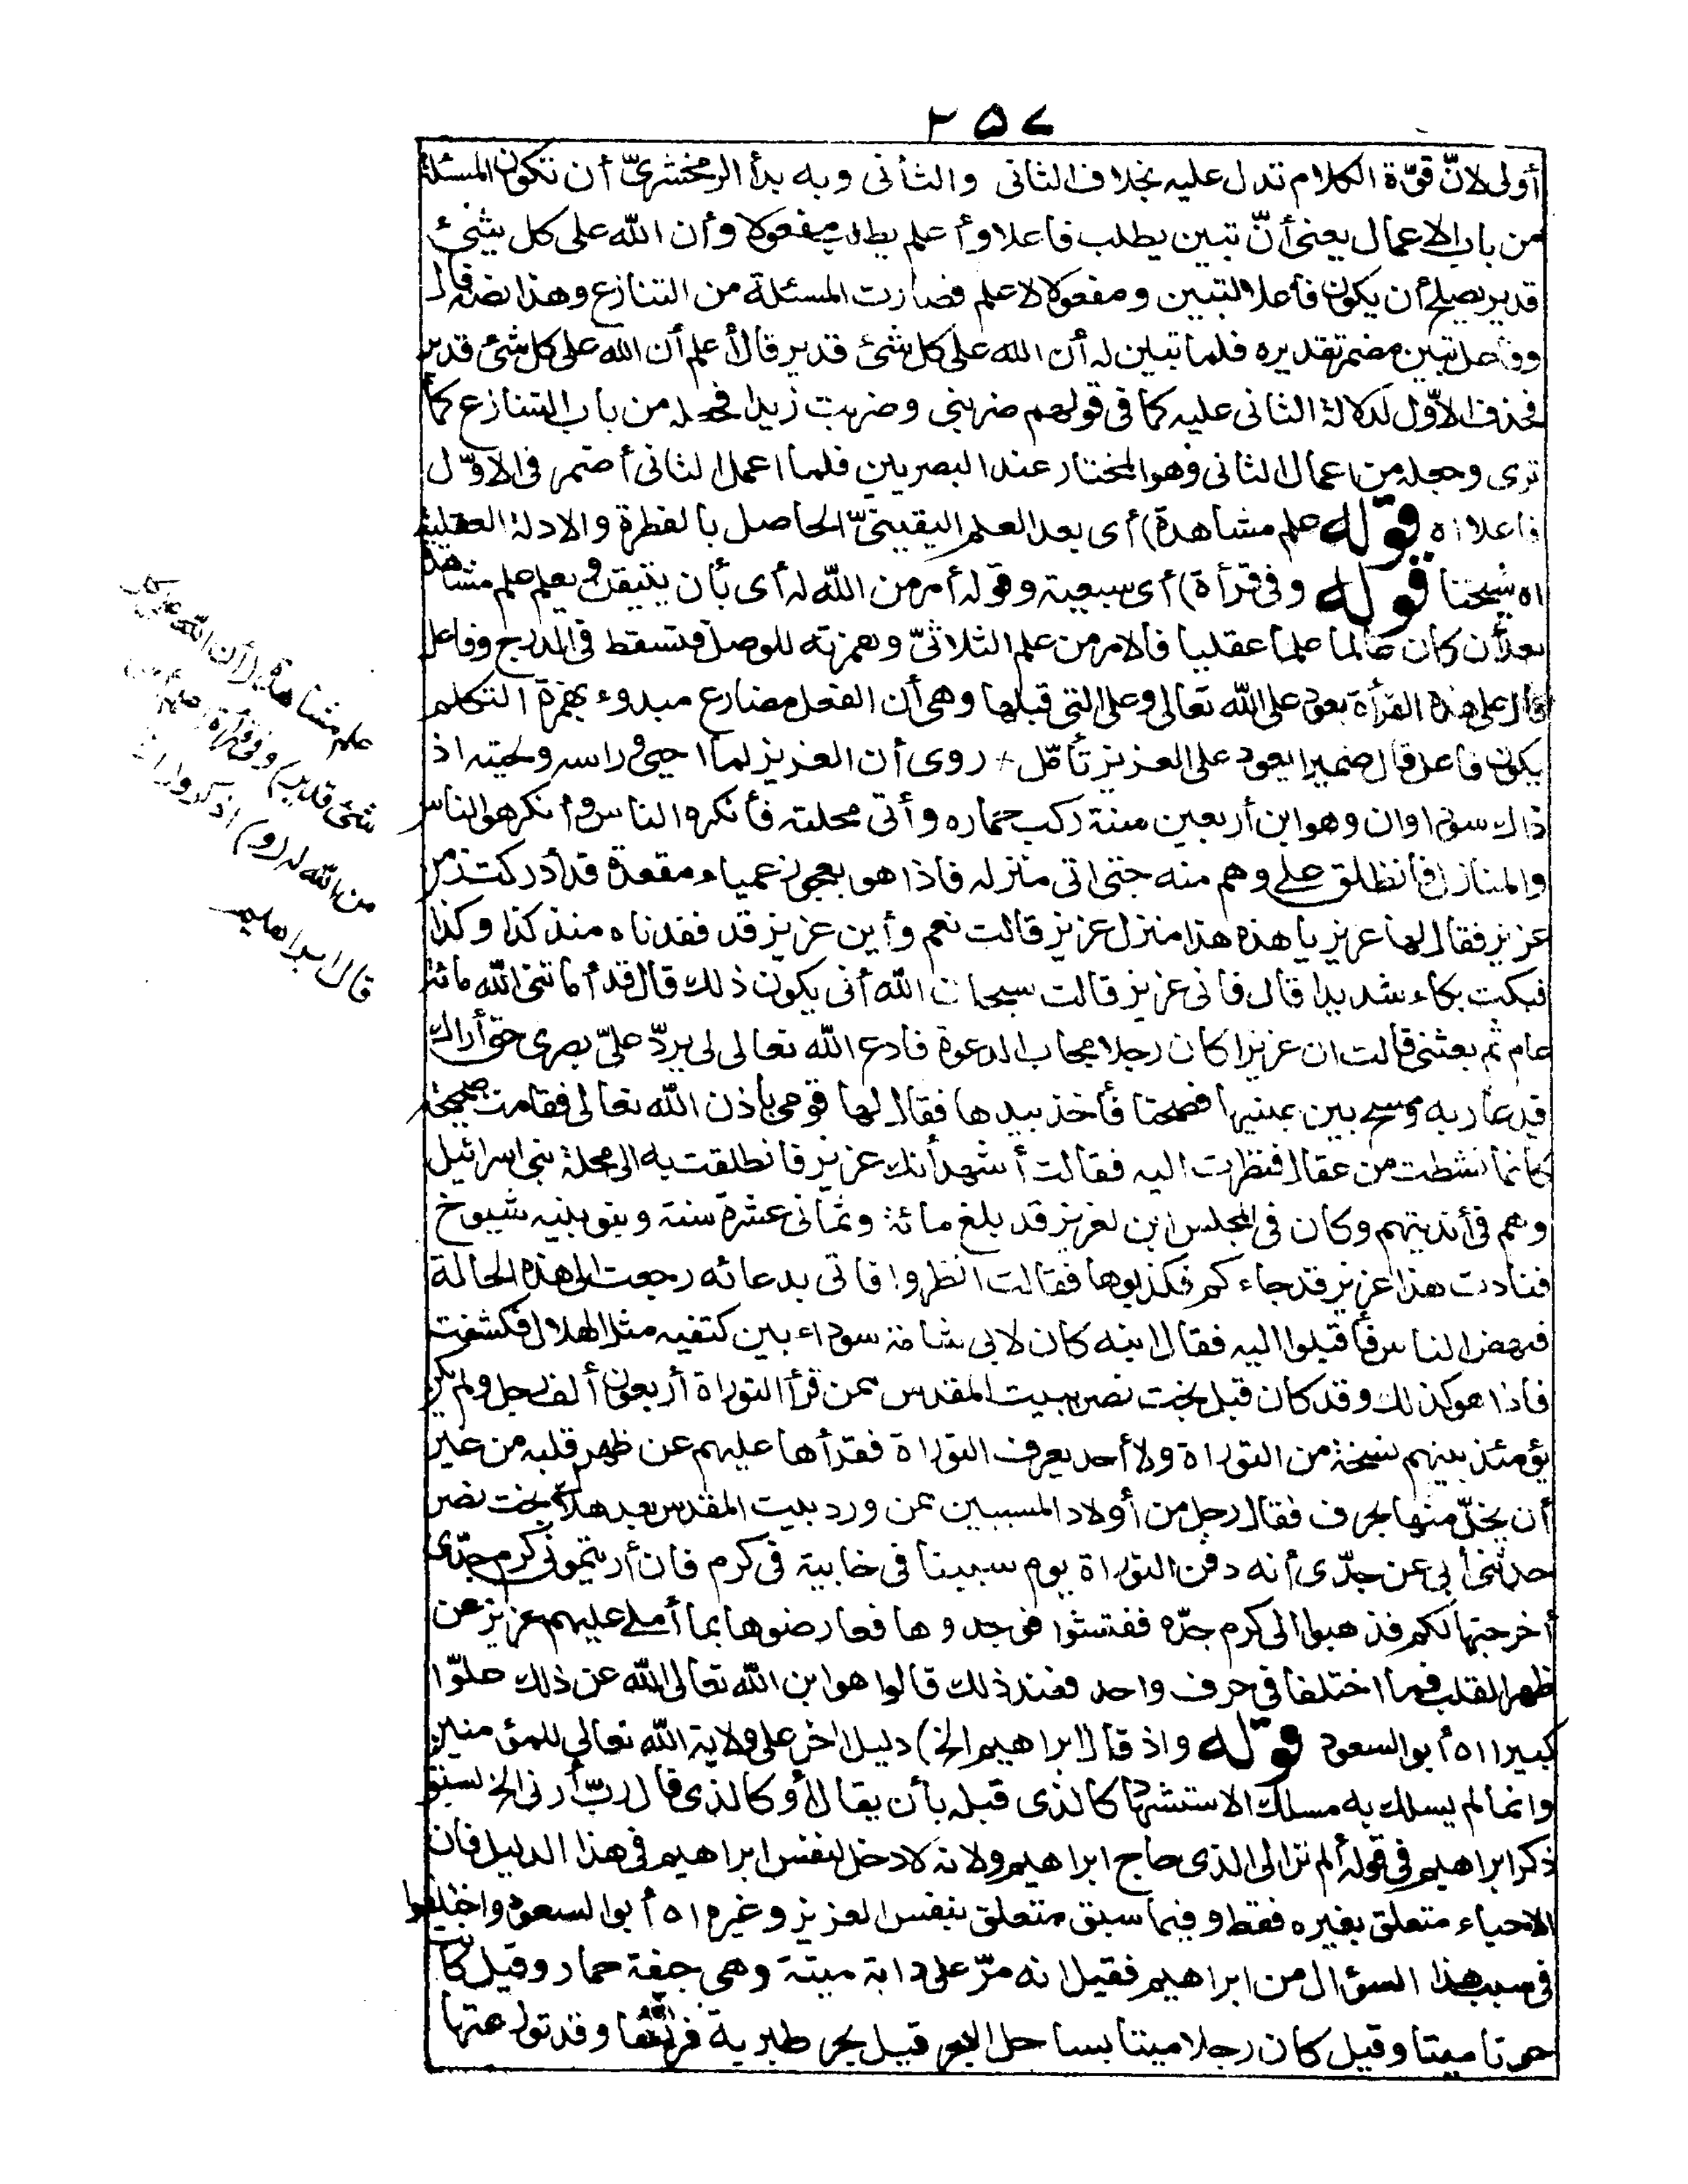 ٢٥٧
أولى لانّ قوّة الكلام تدل عليه بخلاف الثانى والثأنى وبه بدأ الزمخشرىّ أن تكون المسئلة
من باب الاعمال يعنى أنّ تبين يطلب فاعلا وأعلم يطلب مفعولا وأن الله على كل شئ
قدير يصلح أن يكون فاعلا لتبين ومفعولا لاعلم فصارت المسئلة من التنازع وهذا نصه قال
وفاعل تبين مضمر تقديره فلما تبين له أن الله على كل شئ قدير قال أعلم أن الله على كل شئ قدير
فحذف الاوّل لدلالة الثانى عليه كما فى قولهم ضربنى وضربت زيدا فجعله من باب التنازع كما
ترى وجعله من اعمال الثانى وهو المختار عند البصريين فلما اعمل الثانى أضمر فى الاوّل
فاعلا اه قوله علم مشاهدة) أى بعد العلم اليقينىّ الحاصل بالفطرة والادلة العقلية
اه شيخنا قوله وفى قرأة) أى سبعية وقوله أمر من الله له أى بأن يتيقن ويعلم علم مشاهدة
بعد أن كان عالما علما عقليا فالامر من علم الثلاثىّ وهمزته للوصل فتسقط فى الدرج وفاعل
قال على هذه القرأة يعود على الله تعالى وعلى التى قبلها وهى أن الفعل مضارع مبدوء بهمزة التكلم
يكون فاعل قال ضميرا يعود على العزيز تأمّل + روى أن العزيز لما احيى وراسه ولحيته اذ
ذاك سوداوان وهو ابن أربعين سنة ركب حماره وأتى محلته فأنكره الناس وأنكر هو الناس
والمنازل فانطلق على وهم منه حتى اتى منزله فاذا هو بعجوز عمياء مقعدة قد أدركت زمن
عزير فقال لها عزير يا هذه هذا منزل عزيز قالت نعم وأين عزيز قد فقدناه منذ كذا وكذا
فبكت بكاء شديدا قال فانى عزيز قالت سبحان الله أنى يكون ذلك قال قد أماتنى الله مائة
عام ثم بعثنى قالت ان عزيزا كان رجلا مجاب الدعوة فادع الله تعالى لى يردّ علىّ بصرى حتى أراك
فدعا ربه ومسح بين عينيها فصحتا فأخذ بيدها فقال لها قومى باذن الله تعالى فقامت صحيحة
كانما نشطت من عقال فنظرت اليه فقالت أشهد أنك عزيز فانطلقت به الى محلة بنى اسرائيل
وهم فى أنديتهم وكان فى المجلس ابن لعزيز قد بلغ مائة وثمانى عشرة سنة وبنو بنيه شيوخ
فنادت هذا عزيز قد جاءكم فكذبوها فقالت انظروا فانى بدعائه رجعت الى هذه الحالة
فنهض الناس فأقبلوا اليه فقال ابنه كان لابى شامة سوداء بين كتفيه مثل الهلال فكشفت
فاذا هو كذلك وقد كان قبل بخت نصر ببيت المقدس ممن قرأ التوراة أربعون ألف رجل ولم يكن
يؤمئذ بينهم نسخة من التوراة ولا أحد يعرف التوراة فقرأها عليهم عن ظهر قلبه من غير
أن يخلّ منها بحرف فقال رجل من أولاد المسببين ممن ورد بيت المقدس بعد هلاك بخت نصر
حدثنى أبى عن جدّى أنه دفن التوراة يوم سبينا فى خابية فى كرم فان أريتمونى كرم جدّى
أخرجتها لكم فذهبوا الى كرم جدّه ففتشوا فوجدوها فعارضوها بما أملى عليهم عزيز عن
ظهر القلب فما اختلفا فى حرف واحد فعند ذلك قالوا هو ابن الله تعالى الله عن ذلك علوّا
كبيرا اه أبو السعود قوله واذ قال ابراهيم الخ) دليل اخر على ولاية الله تعالى للمؤمنين
وانما لم يسلك به مسلك الاستشهاد كالذى قبله بأن يقال أو كالذى قال ربّ أرنى الخ لسبق
ذكر ابراهيم فى قوله ألم تر الى الذى حاج ابراهيم ولانه لا دخل لنفس ابراهيم فى هذا الدليل فان
الاحياء متعلق بغيره فقط وفيما سبق متعلق بنفس العزيز وغيره اه أبو السعود واختلفوا
فى سبب هذا السؤال من ابراهيم فقيل انه مرّ على دابة ميتة وهى جيفة حمار وقيل كانت
حوتا ميتا وقيل كان رجلا ميتا بساحل البحر قيل بحر طبرية فرآها وقد توزعتها
علم مشاهدة (أن الله على كل
شئ قدير) وفى قرأة اعلم أمر
من الله له (و) اذكر
قال ابراهيم